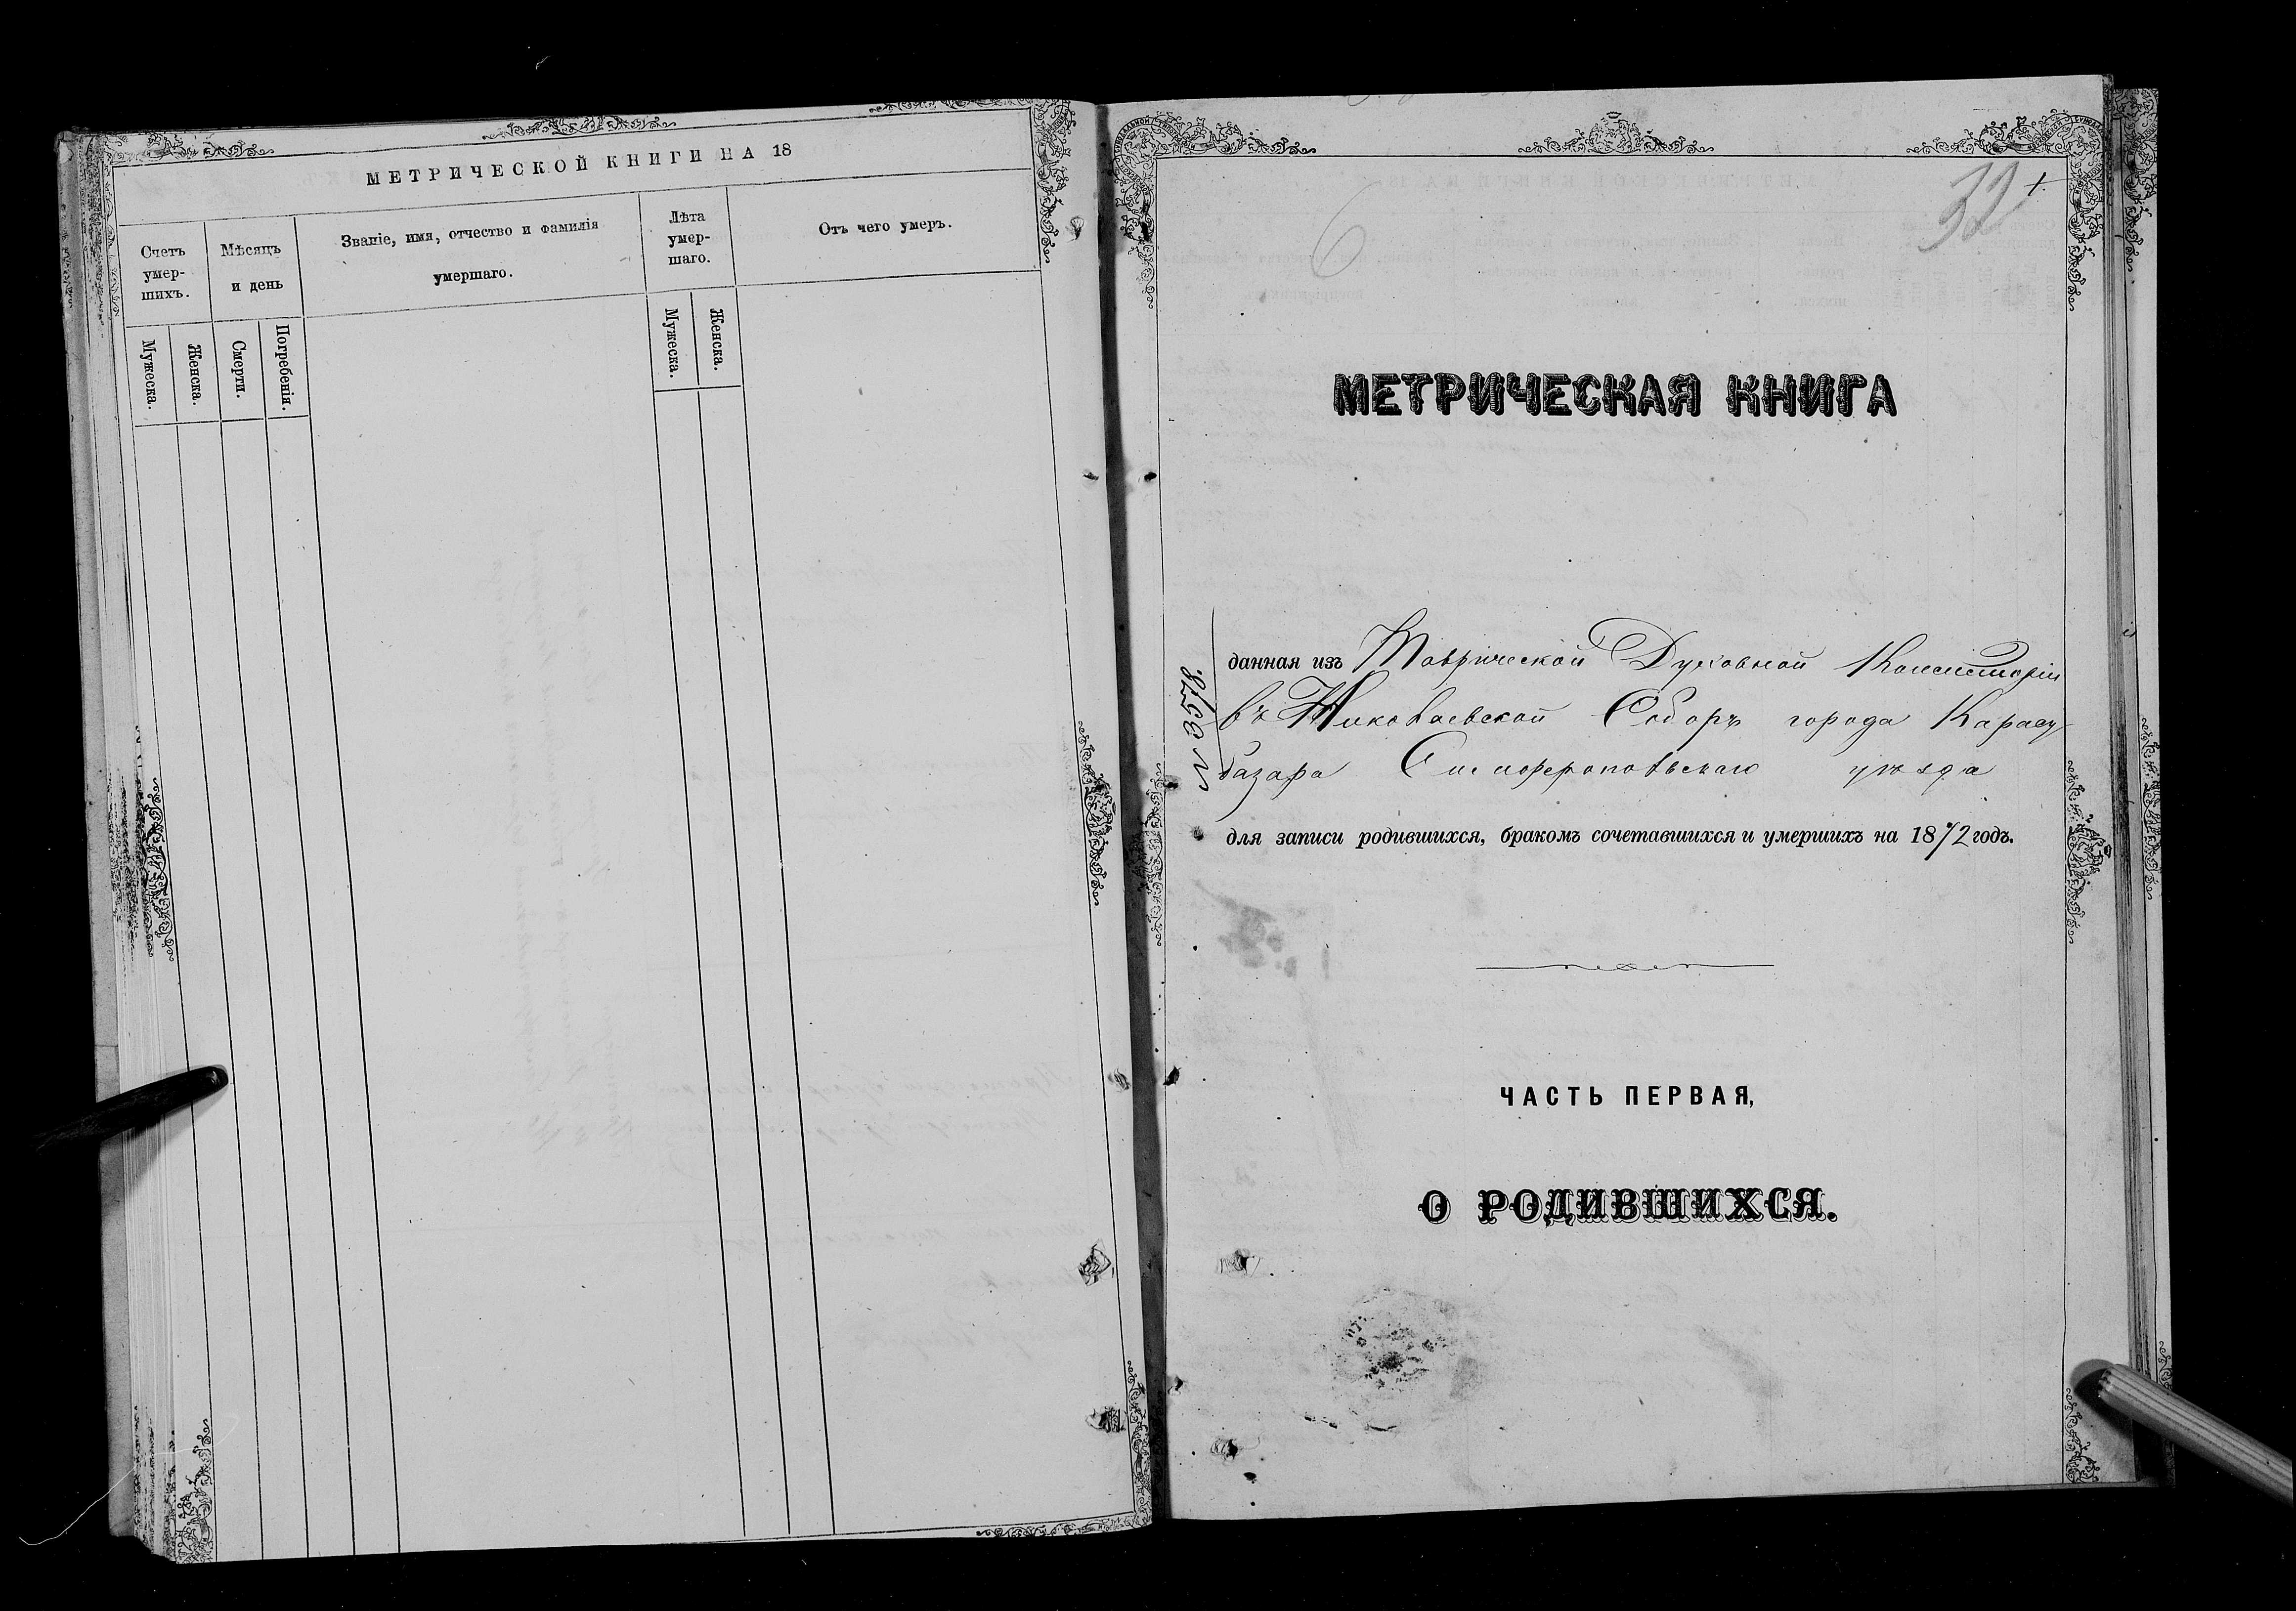 МЕТРИЧЕСКОЙ КНИГИ НА 18
Счетъ
умер-
шихъ.
Мѣсяцъ
и день
Званіе, имя, отчество и фамилія
умершаго.
Лѣта
умер-
шаго.
Отъ чего умеръ.
Мужеска.
Женска.
Смерти.
Погребенія.
Мужеска.
Женска.
6
МЕТРИЧЕСКАЯ КНИГА
данная изъ Таврической Духовной Консисторіи
въ Николаевской Соборъ города Карасу-
базара Симферопольскаго уѣзда
№ 3578.
для записи родившихся, бракомъ сочетавшихся и умершихъ на 1872 годъ.
ЧАСТЬ ПЕРВАЯ,
О РОДИВШИХСЯ.